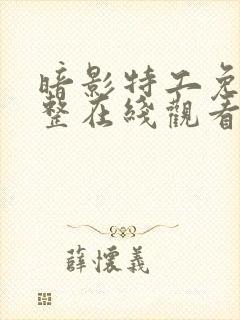 暗影特工免
整在綫觀看
薛懷義